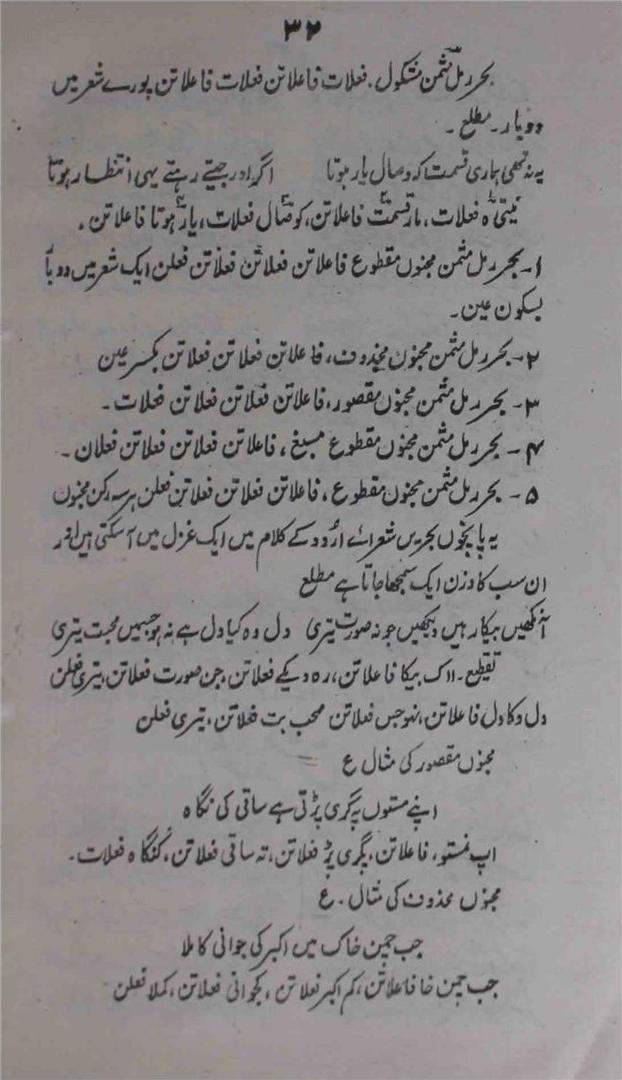 ۳۲
بحر رمل مثمن مشکول. فعلات فاعلاتن فعلات فاعلاتن پورے شعر میں
دو بار۔ مطلع۔
یہ نہ تھی ہماری قسمت کہ وصال یار ہوتا اگر اور جیتے رہتے یہی انتظار ہوتا
فعلات، مار قسمت فاعلاتن، کوصال فعلات، یار ہوتا فاعلاتن.
۱۔ بحر رمل مثمن مخبون مقطوع فاعلاتن فعلاتن فعلاتن فعلن ایک شعر میں دو بار
بسکون عین۔
۲۔ بحر رمل مثمن مخبون محذوف، فاعلاتن فعلاتن فعلاتن بکسر عین
۳۔ بحر رمل مثمن مخبون مقصور، فاعلاتن فعلاتن فعلاتن فعلات۔
۴۔ بحر رمل مثمن مخبون مقطوع مسبغ، فاعلاتن فعلاتن فعلاتن فعلان۔
۵۔ بحر رمل مثمن مخبون مقطوع، فاعلاتن فعلاتن فعلاتن فعلن ہر سہ رکن مخبون
یہ پانچوں بحریں شعرائے اردو کے کلام میں ایک غزل میں آ سکتی ہیں اور
ان سب کا وزن ایک سمجھا جاتا ہے مطلع
آنکھیں بیکار ہیں دیکھیں جو نہ صورت تیری دل وہ کیا دل ہے نہ ہو جسمیں محبت تیری
تقطیع۔ ااک بیکا فاعلاتن، رہ دیکے فعلاتن، جن صورت فعلاتن، تیری فعلن
دل وکا دل فاعلاتن، نہو جس فعلاتن محب بت فعلاتن، تیری فعلن
مخبون مقصور کی مثال ع
اپنے مستوں پہ گری پڑتی ہے ساقی کی نگاہ
اپ نمستو، فاعلاتن، پگری پڑ فعلاتن، تہ ساقی فعلاتن، کنگاہ فعلات۔
مخبون محذوف کی مثال۔ ع
جب چمن خاک میں اکبر کی جوانی کا ملا
جب چمن خا فاعلاتن، کم اکبر فعلاتن، کجوانی فعلاتن، کملا فعلن